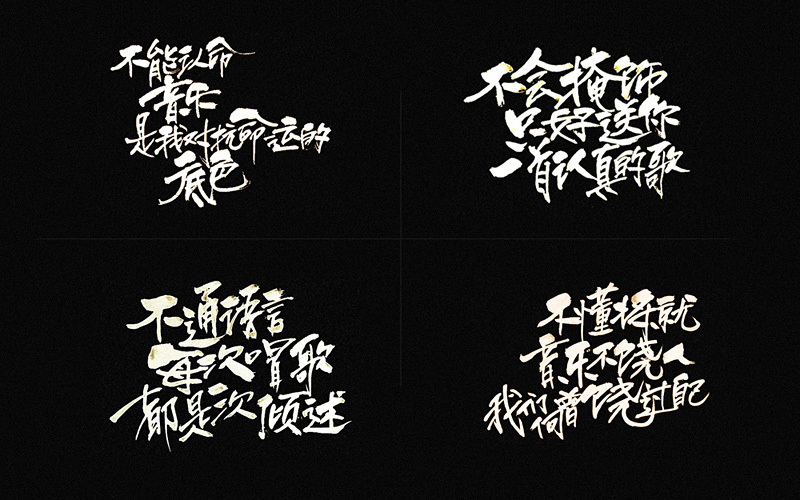 不能认命
音乐
是我对抗命运的
底色
不会掩饰
只好送你
一首认真的歌
不通语言
每次唱歌
都是次倾述
不懂将就
音乐不饶人
我们何曾饶过自己